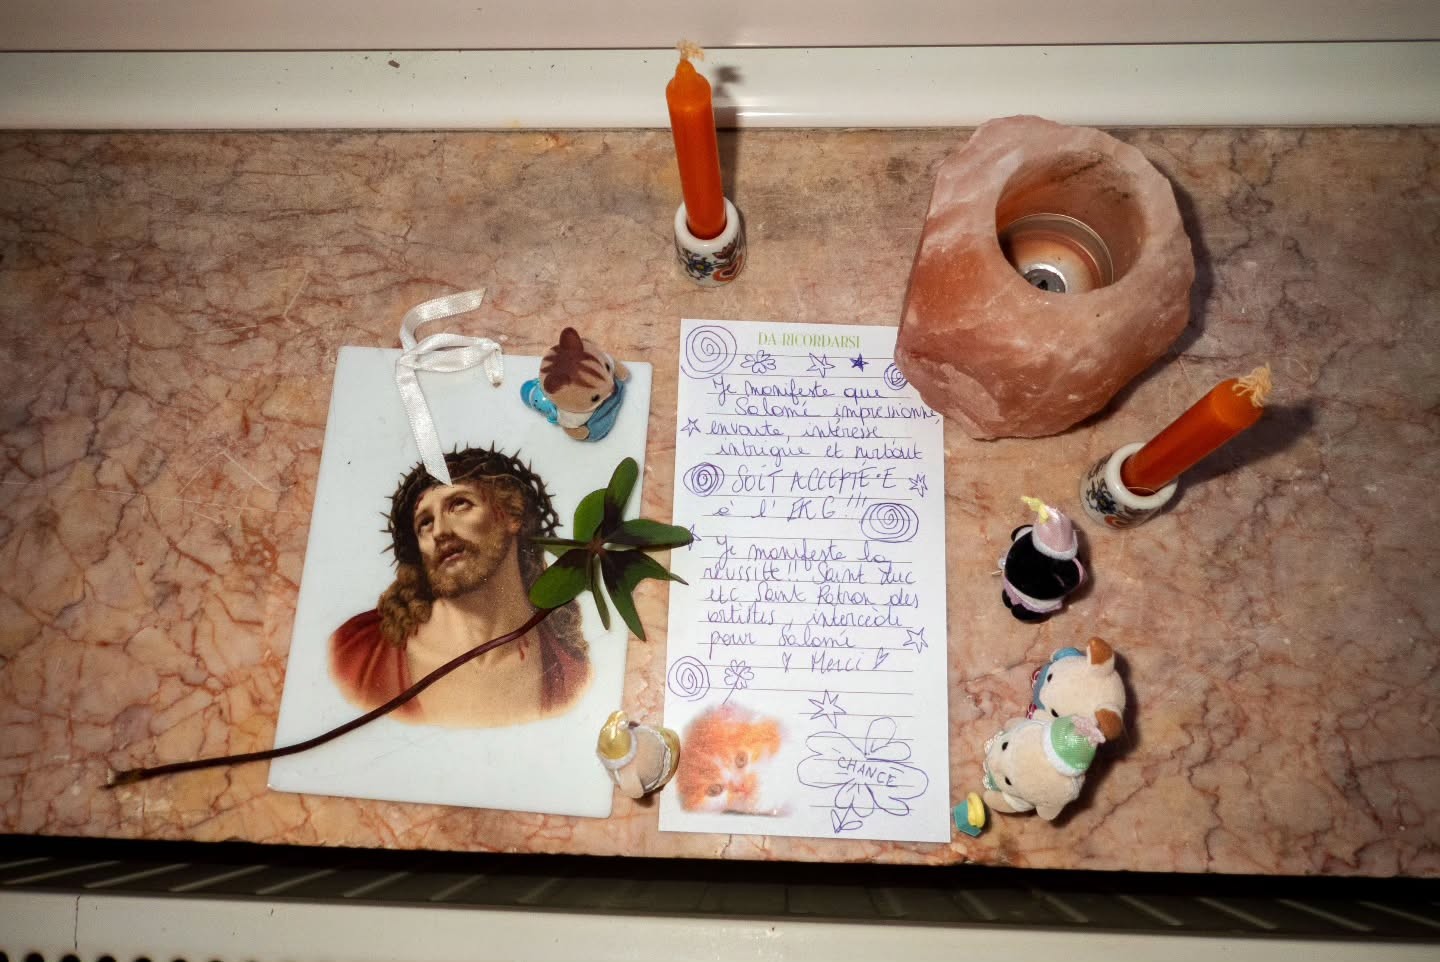 DA RICORDARSI
Je manifeste que
Salomé impressionne,
envoute, intéresse
intrigue et surtout
SOIT ACCEPTÉ·E
à l'ERG!!!
Je manifeste la
réussite!! Saint Luc
etc Saint Patron des
artistes, intercède
pour Salomé
Merci
CHANCE